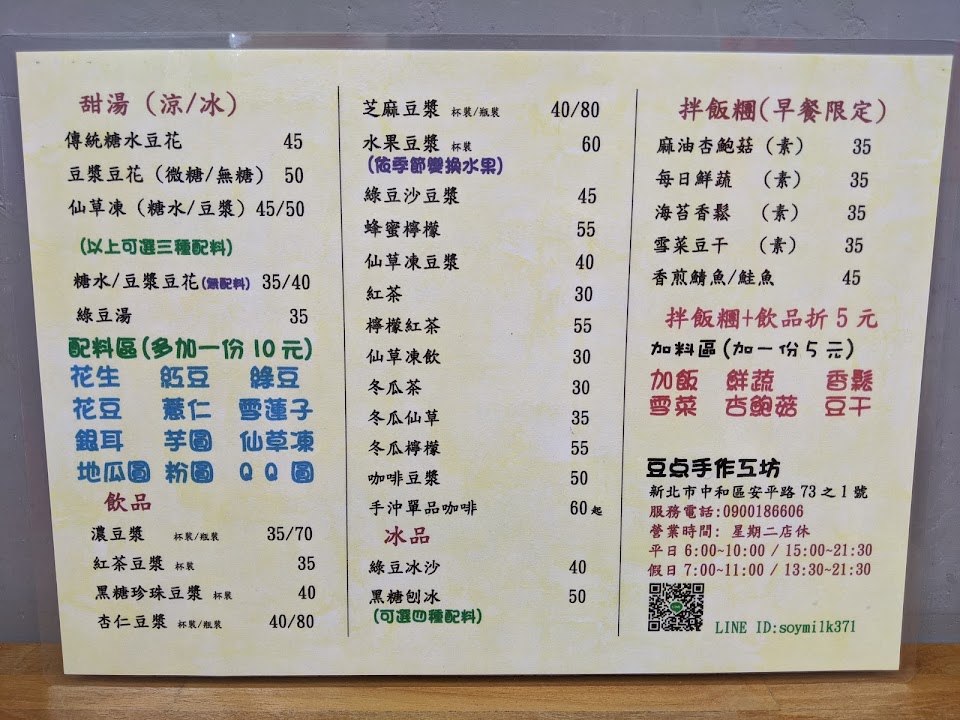 甜湯（涼/冰）
傳統糖水豆花 45
豆漿豆花（微糖/無糖） 50
仙草凍（糖水/豆漿）45/50
(以上可選三種配料)
糖水/豆漿豆花(無配料) 35/40
綠豆湯 35
配料區(多加一份10元)
花生 紅豆 綠豆
花豆 薏仁 雪蓮子
銀耳 芋圓 仙草凍
地瓜圓 粉圓 QQ圓
飲品
濃豆漿 杯裝/瓶裝 35/70
紅茶豆漿 杯裝 35
黑糖珍珠豆漿 杯裝 40
杏仁豆漿 杯裝/瓶裝 40/80
芝麻豆漿 杯裝/瓶裝 40/80
水果豆漿 杯裝 60
(依季節變換水果)
綠豆沙豆漿 45
蜂蜜檸檬 55
仙草凍豆漿 40
紅茶 30
檸檬紅茶 55
仙草凍飲 30
冬瓜茶 30
冬瓜仙草 35
冬瓜檸檬 55
咖啡豆漿 50
手沖單品咖啡 60起
冰品
綠豆冰沙 40
黑糖刨冰 50
(可選四種配料)
拌飯糰(早餐限定)
麻油杏鮑菇（素） 35
每日鮮蔬 （素） 35
海苔香鬆 （素） 35
雪菜豆干 （素） 35
香煎鯖魚/鮭魚 45
拌飯糰+飲品折5元
加料區(加一份5元)
加飯 鮮蔬 香鬆
雪菜 杏鮑菇 豆干
豆点手作工坊
新北市中和區安平路73之1號
服務電話:0900186606
營業時間: 星期二店休
平日 6:00~10:00 / 15:00~21:30
假日 7:00~11:00 / 13:30~21:30
LINE ID:soymilk371